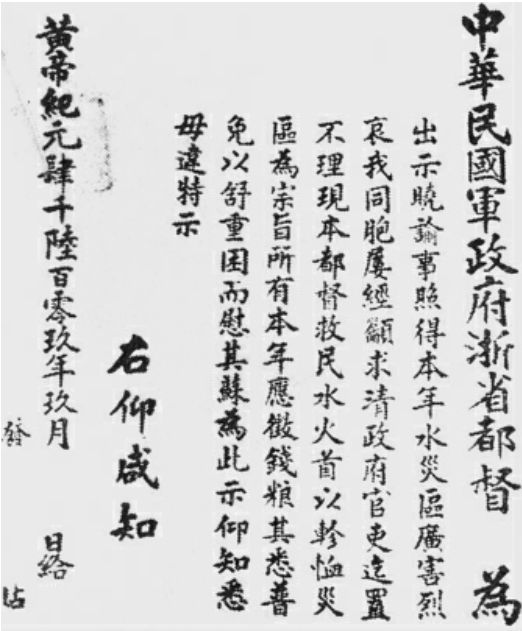 中華民國軍政府浙省都督　為
出示曉諭事照得本年水災區廣害烈
哀我同胞屢經籲求清政府官吏迄置
不理現本都督救民水火首以軫恤災
區為宗旨所有本年應徵錢粮其悉普
免以舒重困而慰其蘇為此示仰知悉
毋違特示
右仰咸知
黃帝紀元肆千陸百零玖年玖月　日給
發　貼